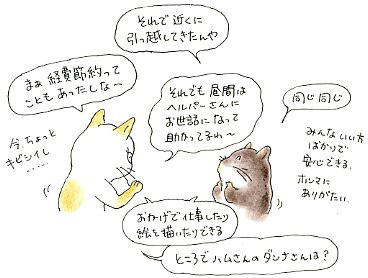 それで近くに
引っ越してきたんや
まぁ経費節約って
こともあったしな〜
今、ちょっと
キビシイし
……
それでも昼間は
ヘルパーさんに
お世話になって
助かってるわ〜
同じ同じ
みんないい方
ばかりで
安心できる。
ホンマに
ありがたい。
おかげで仕事したり
絵を描いたりできる
ところでハムさんのダンナさんは？